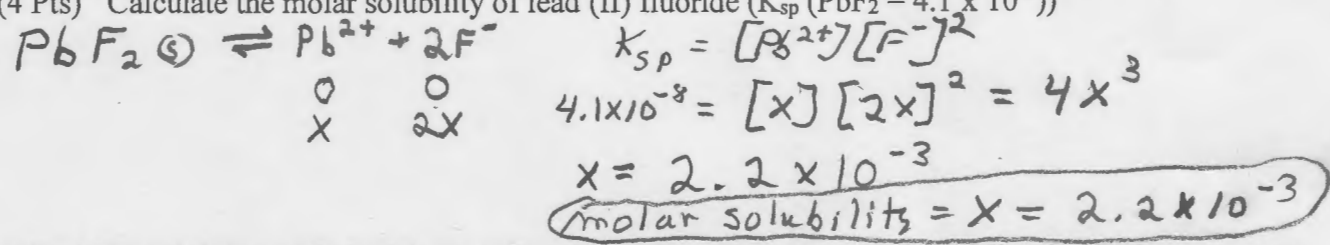 (4 Pts) Calculate the molar solubility of lead (II) fluoride (Ksp (PbF2 – 4.1 x 10
PbF2 (s) ⇌ Pb²⁺ + 2F⁻ Ksp = [Pb²⁺][F⁻]²
0 0
4.1x10⁻⁸ = [x][2x]² = 4x³
x 2x
x = 2.2 x 10⁻³
molar solubility = x = 2.2 x 10⁻³